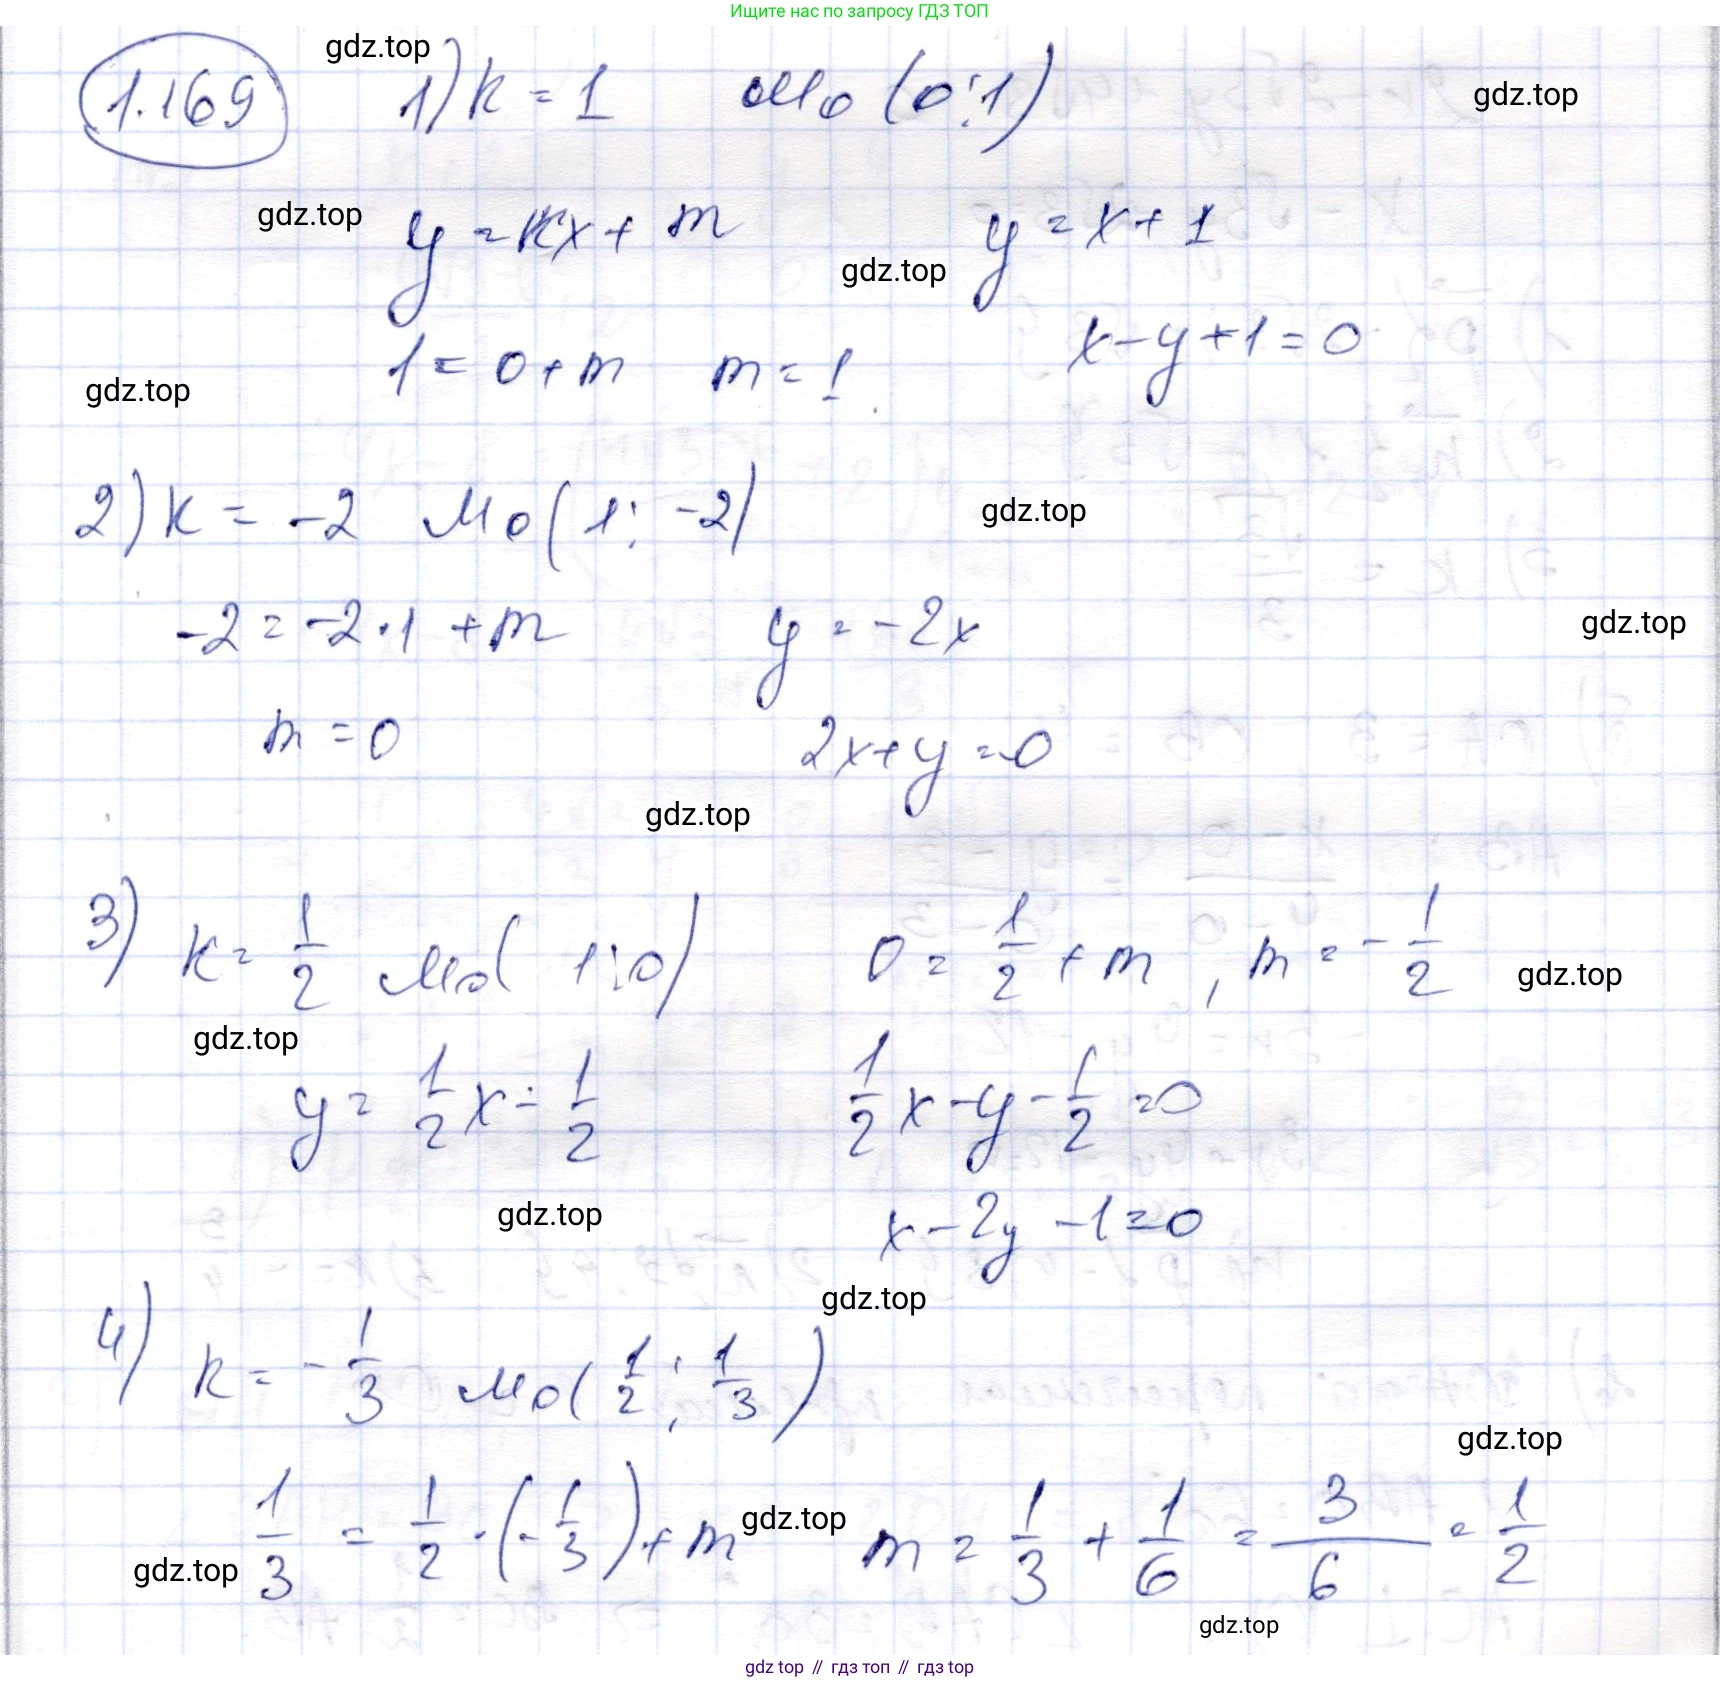 Ищите нас по запросу ГДЗ ТОП
gdz.top
1.169 1) k = 1 M₀ (0; 1) gdz.top
gdz.top y = kx + m y = x + 1
gdz.top
1 = 0 + m m = 1 x - y + 1 = 0
gdz.top
2) k = -2 M₀ (1; -2) gdz.top
-2 = -2 · 1 + m y = -2x gdz.top
m = 0 2x + y = 0
gdz.top
3) k = 1/2 M₀ (1; 0) 0 = 1/2 + m, m = -1/2 gdz.top
gdz.top
y = 1/2 x - 1/2 1/2 x - y - 1/2 = 0
gdz.top x - 2y - 1 = 0
gdz.top
4) k = -1/3 M₀ (1/2; 1/3)
gdz.top
1/3 = 1/2 · (-1/3) + m gdz.top m = 1/3 + 1/6 = 3/6 = 1/2
gdz.top
gdz.top
gdz top // гдз топ // гдз top